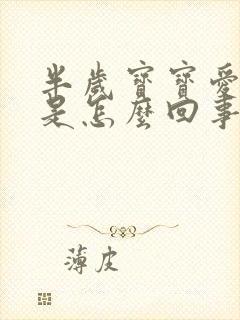 半歲寶寶愛
是怎麼回事
薄皮